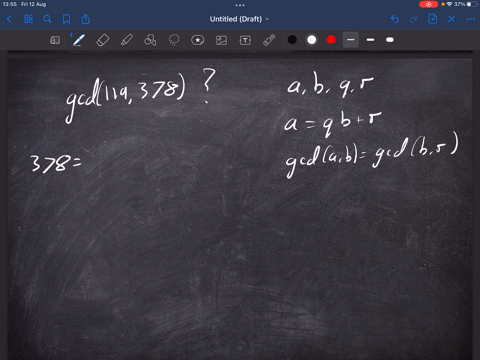 13:55 Fri 12 Aug
37%
Untitled (Draft)
gcd(119, 378) ?
a, b, q, r
a = qb + r
gcd(a,b) = gcd(b,r)
378 =